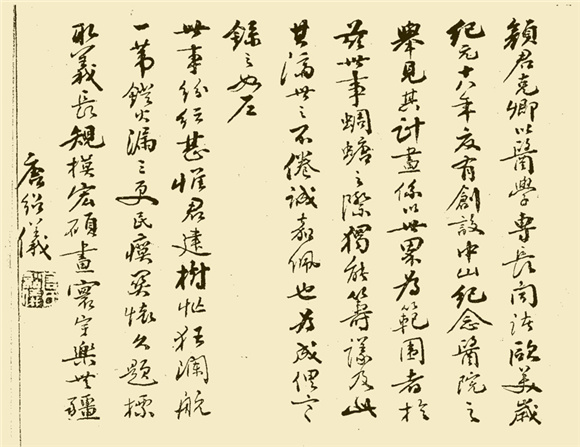 顏君克卿以醫學專長聞法歐美歲
紀元十八年度有創設中山紀念醫院之
舉見其計畫係以世界為範圍者於
茲世事蜩螗之際獨能籌議及此
其濟世之不倦誠嘉佩也為成俚言
錄之如左
世事紛紜甚惟君建樹 狂瀾航
一葦鐙火漏三更民瘼關懷久題標
取義長規模宏碩畫寰宇樂無疆
唐紹儀